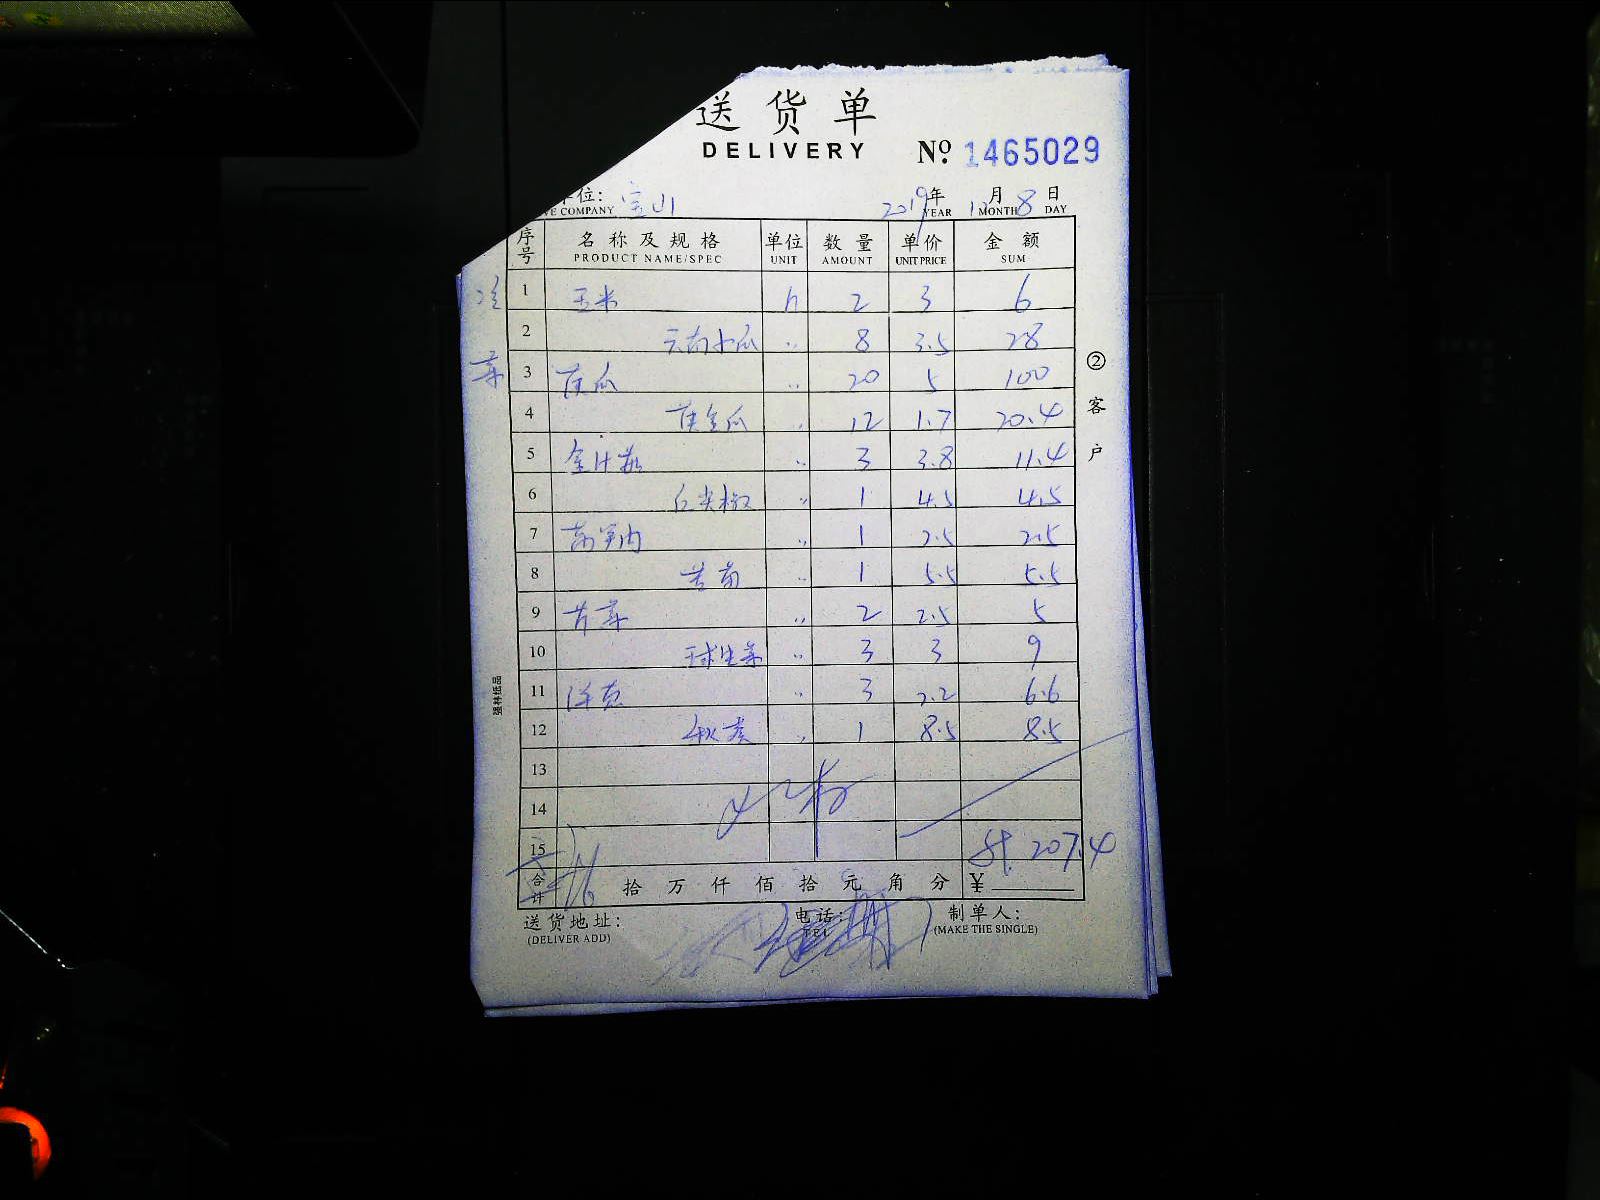 送货单
DELIVERY № 1465029
单位: 宝山 2019年 10月 8日
VE COMPANY YEAR MONTH DAY
序号 名称及规格 单位 数量 单价 金额
PRODUCT NAME/SPEC UNIT AMOUNT UNIT PRICE SUM
1 玉米 2 3 6
2 云南小瓜 〃 8 3.5 28
3 黄瓜 〃 20 5 100
4 黄金瓜 〃 12 1.7 20.4
5 金针菇 〃 3 3.8 11.4
6 红尖椒 〃 1 4.5 4.5
7 莴笋肉 〃 1 2.5 2.5
8 〃 1 5.5 5.5
9 〃 2 2.5 5
10 球生菜 〃 3 3 9
11 洋葱 〃 3 2.2 6.6
12 秋葵 〃 1 8.5 8.5
13
14
15 207.4
合计 拾 万 仟 佰 拾 元 角 分 ¥
送货地址: 电话: 制单人:
(DELIVER ADD) TEL (MAKE THE SINGLE)
②客户
强林纸品